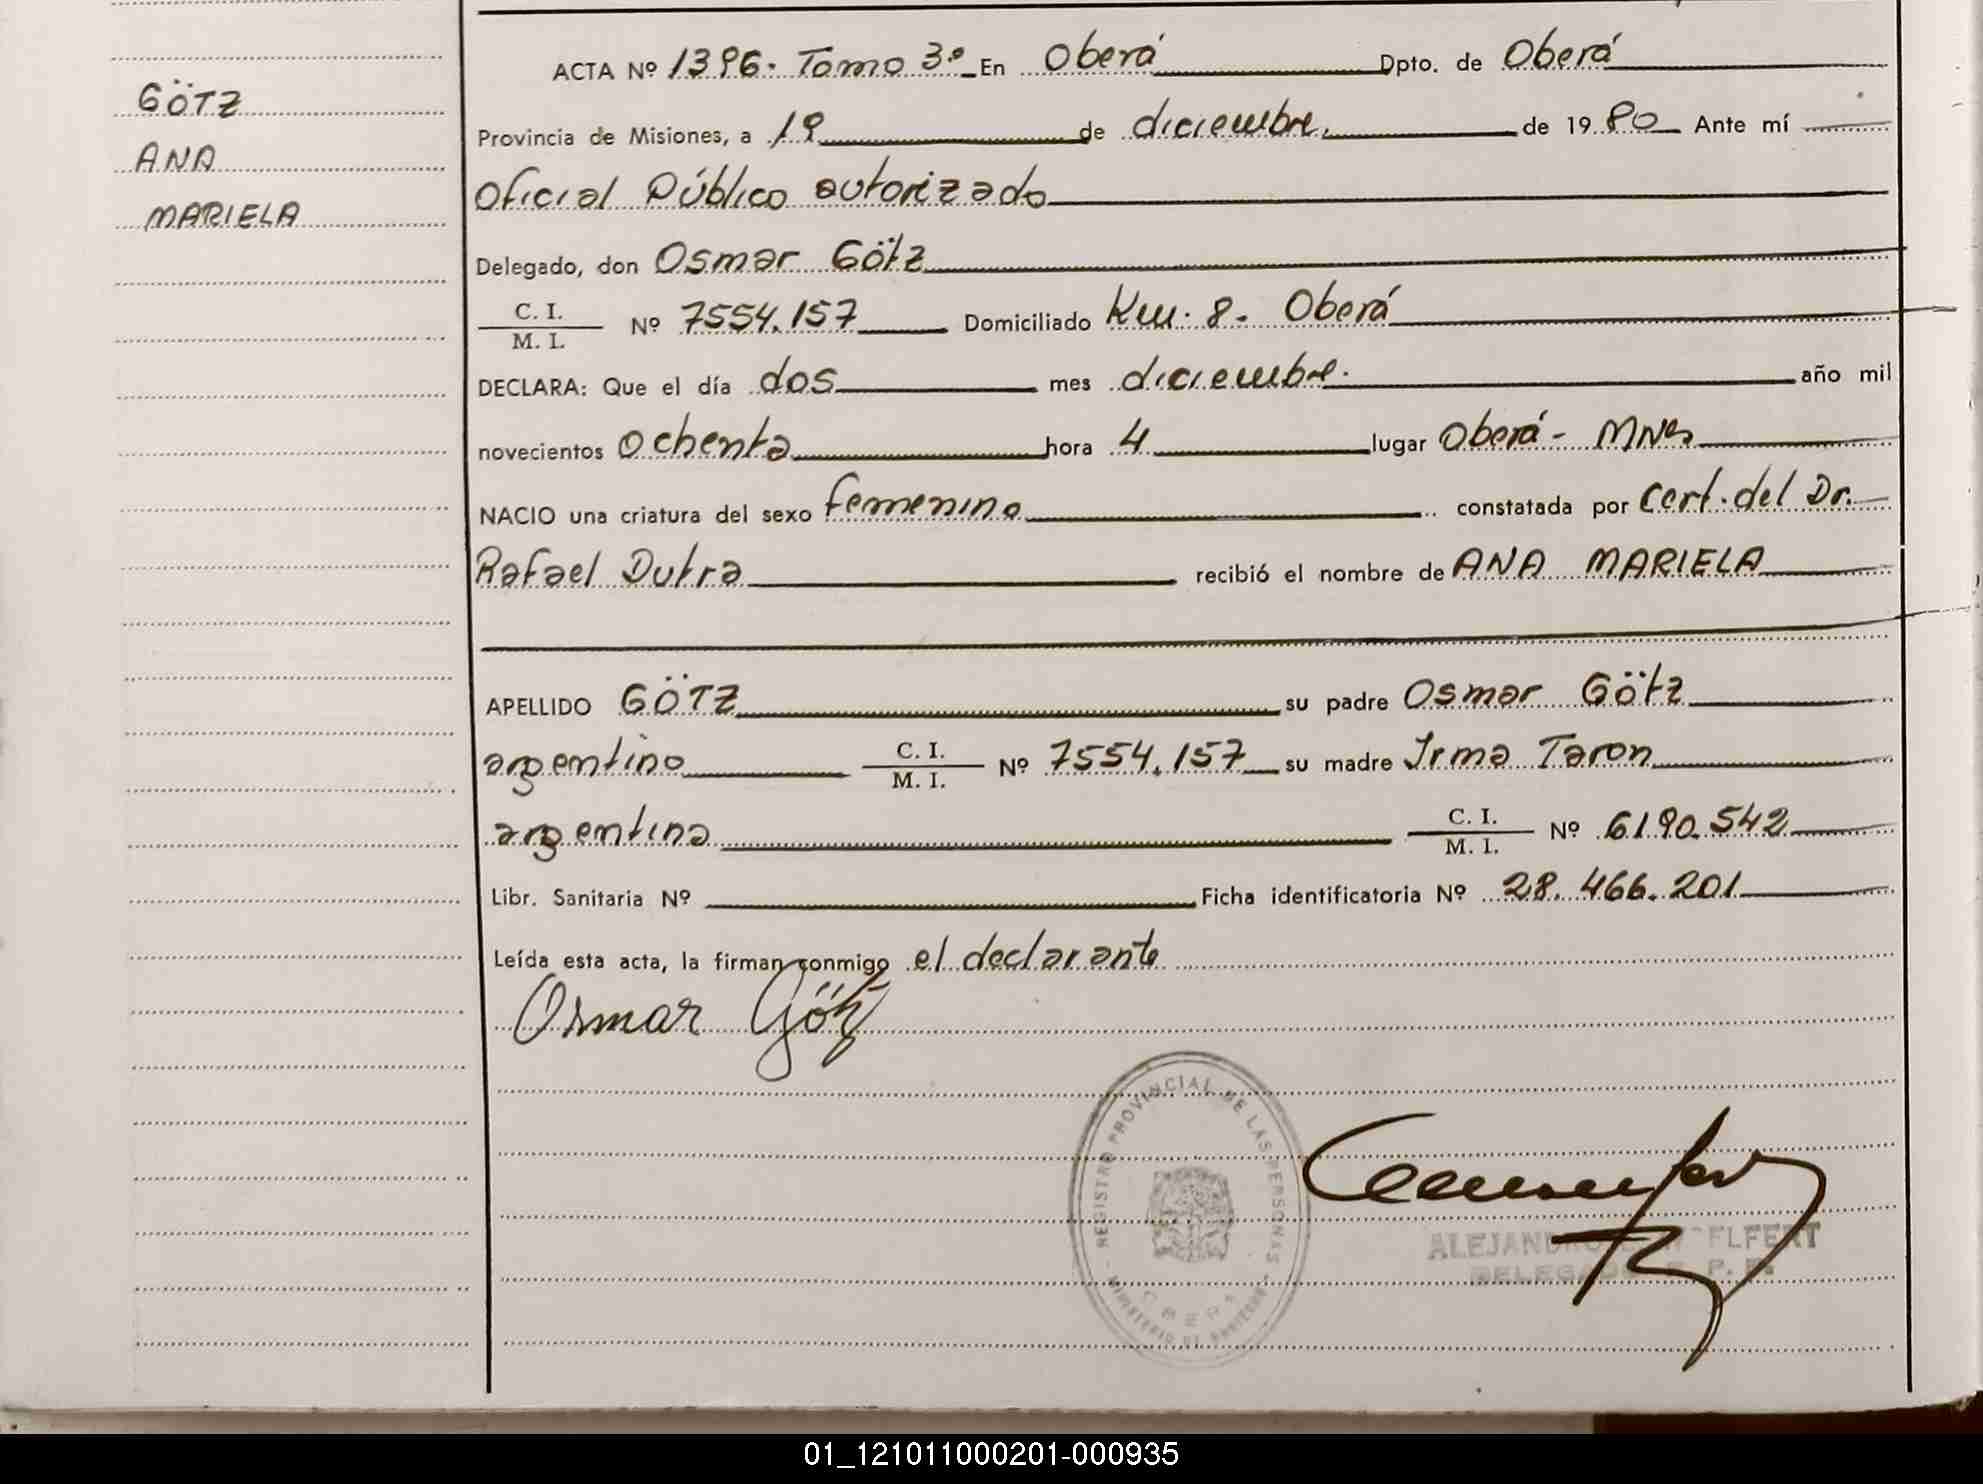 GÖTZ
ANA
MARIELA
ACTA Nº 1396. Tomo 3º En Oberá Dpto. de Oberá
Provincia de Misiones, a 19 de diciembre, de 1980 Ante mí
Oficial Público autorizado
Delegado, don Osmar Götz
C. I. / M. I. Nº 7554.157 Domiciliado Km. 8. Oberá
DECLARA: Que el día dos mes diciembre. año mil
novecientos Ochenta hora 4 lugar Oberá - Mnes
NACIO una criatura del sexo femenino constatada por Cert. del Dr.
Rafael Dutra recibió el nombre de ANA MARIELA
APELLIDO GÖTZ su padre Osmar Götz
argentino C. I. / M. I. Nº 7554.157 su madre Irma Taron
argentina C. I. / M. I. Nº 6190.542
Libr. Sanitaria Nº Ficha identificatoria Nº 28.466.201
Leída esta acta, la firman conmigo el declarante
Osmar Götz
REGISTRO PROVINCIAL DE LAS PERSONAS
MINISTERIO DE
OBERA
01_121011000201-000935